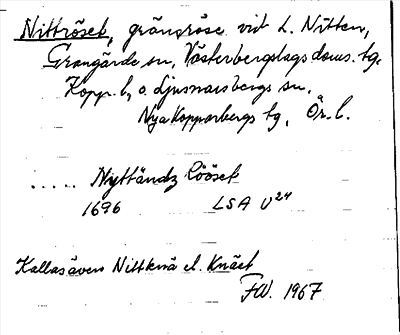 Nittröset, gränsröse vid L. Nitten,
Grangärde sn, Västerbergslags doms. tg,
Kopp. l., o. Ljusnarsbergs sn,
Nya Kopparbergs tg, Ör. l.
..... Nyttändz Röösek
1696 LSA U24
Kallas även Nittknä el. Knäet
FW. 1967